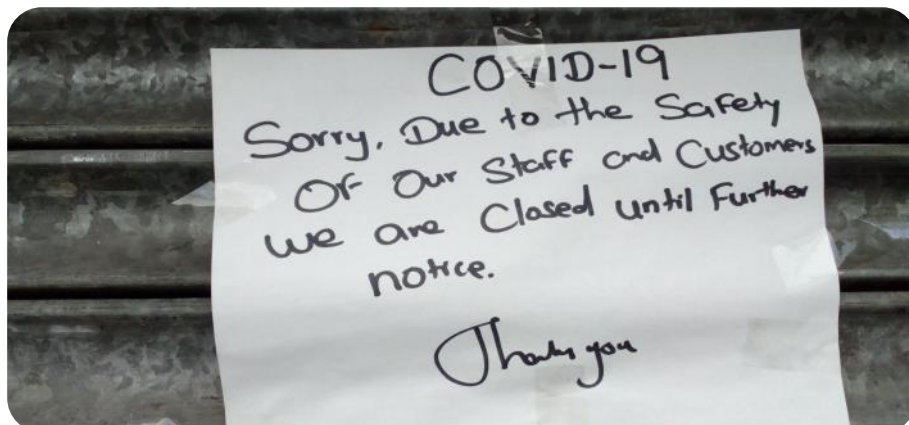 COVID-19
Sorry, Due to the Safety
Of Our Staff and Customers
we are Closed until Further
notice.
Thank you